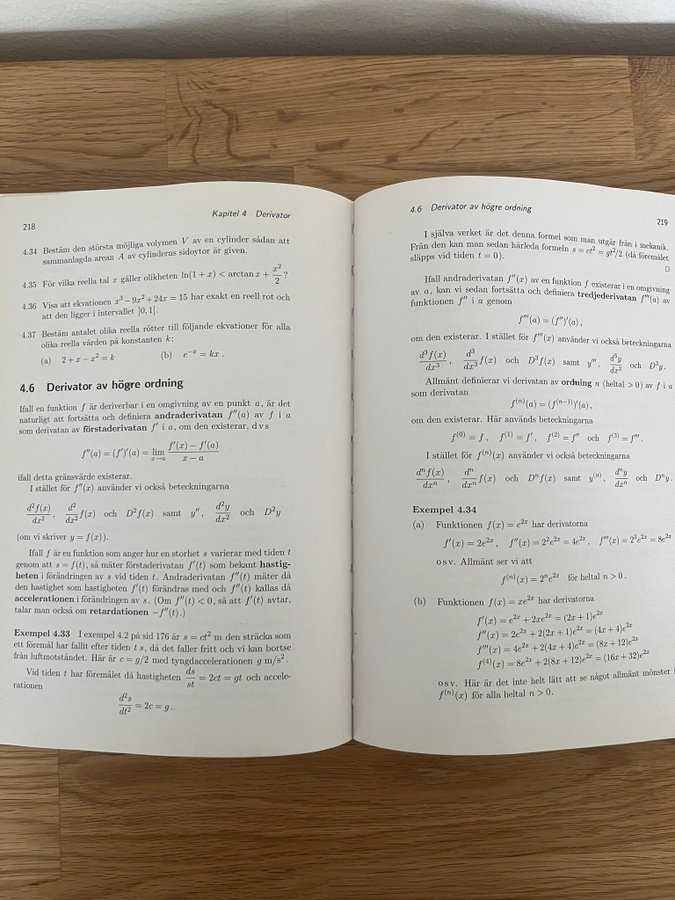 218
Kapitel 4 Derivator
4.34 Bestäm den största möjliga volymen V av en cylinder sådan att
sammanlagda arean A av cylinderns sidoytor är given.
4.35 För vilka reella tal x gäller olikheten ln(1 + x) < arctan x + x²/2 ?
4.36 Visa att ekvationen x³ − 9x² + 24x = 15 har exakt en reell rot och
att den ligger i intervallet ]0, 1[.
4.37 Bestäm antalet olika reella rötter till följande ekvationer för alla
olika reella värden på konstanten k:
(a) 2 + x − x² = k (b) e⁻ˣ = kx .
4.6 Derivator av högre ordning
Ifall en funktion f är deriverbar i en omgivning av en punkt a, är det
naturligt att fortsätta och definiera andraderivatan f″(a) av f i a
som derivatan av förstaderivatan f′ i a, om den existerar, d v s
f″(a) = (f′)′(a) = lim x→a (f′(x) − f′(a))/(x − a)
ifall detta gränsvärde existerar.
I stället för f″(x) använder vi också beteckningarna
d²f(x)/dx² , d²/dx² f(x) och D²f(x) samt y″, d²y/dx² och D²y
(om vi skriver y = f(x)).
Ifall f är en funktion som anger hur en storhet s varierar med tiden t
genom att s = f(t), så mäter förstaderivatan f′(t) som bekant hastig-
heten i förändringen av s vid tiden t. Andraderivatan f″(t) mäter då
den hastighet som hastigheten f′(t) förändras med och f″(t) kallas då
accelerationen i förändringen av s. (Om f″(t) < 0, så att f′(t) avtar,
talar man också om retardationen −f″(t).)
Exempel 4.33 I exempel 4.2 på sid 176 är s = ct² m den sträcka som
ett föremål har fallit efter tiden t s, då det faller fritt och vi kan bortse
från luftmotståndet. Här är c = g/2 med tyngdaccelerationen g m/s².
Vid tiden t har föremålet då hastigheten ds/st = 2ct = gt och accele-
rationen
d²s/dt² = 2c = g .
4.6 Derivator av högre ordning
219
I själva verket är det denna formel som man utgår från i mekanik.
Från den kan man sedan härleda formeln s = ct² = gt²/2 (då föremålet
släpps vid tiden t = 0).
□
Ifall andraderivatan f″(x) av en funktion f existerar i en omgivning
av a, kan vi sedan fortsätta och definiera tredjederivatan f‴(a) av
funktionen f″ i a genom
f‴(a) = (f″)′(a),
om den existerar. I stället för f‴(x) använder vi också beteckningarna
d³f(x)/dx³ , d³/dx³ f(x) och D³f(x) samt y‴, d³y/dx³ och D³y.
Allmänt definierar vi derivatan av ordning n (heltal > 0) av f i a
som derivatan
f⁽ⁿ⁾(a) = (f⁽ⁿ⁻¹⁾)′(a),
om den existerar. Här används beteckningarna
f⁽⁰⁾ = f , f⁽¹⁾ = f′, f⁽²⁾ = f″ och f⁽³⁾ = f‴.
I stället för f⁽ⁿ⁾(x) använder vi också beteckningarna
dⁿf(x)/dxⁿ , dⁿ/dxⁿ f(x) och Dⁿf(x) samt y⁽ⁿ⁾, dⁿy/dxⁿ och Dⁿy.
Exempel 4.34
(a) Funktionen f(x) = e²ˣ har derivatorna
f′(x) = 2e²ˣ, f″(x) = 2²e²ˣ = 4e²ˣ, f‴(x) = 2³e²ˣ = 8e²ˣ
o s v. Allmänt ser vi att
f⁽ⁿ⁾(x) = 2ⁿe²ˣ för heltal n > 0.
(b) Funktionen f(x) = xe²ˣ har derivatorna
f′(x) = e²ˣ + 2xe²ˣ = (2x + 1)e²ˣ
f″(x) = 2e²ˣ + 2(2x + 1)e²ˣ = (4x + 4)e²ˣ
f‴(x) = 4e²ˣ + 2(4x + 4)e²ˣ = (8x + 12)e²ˣ
f⁽⁴⁾(x) = 8e²ˣ + 2(8x + 12)e²ˣ = (16x + 32)e²ˣ
o s v. Här är det inte helt lätt att se något allmänt mönster
f⁽ⁿ⁾(x) för alla heltal n > 0.